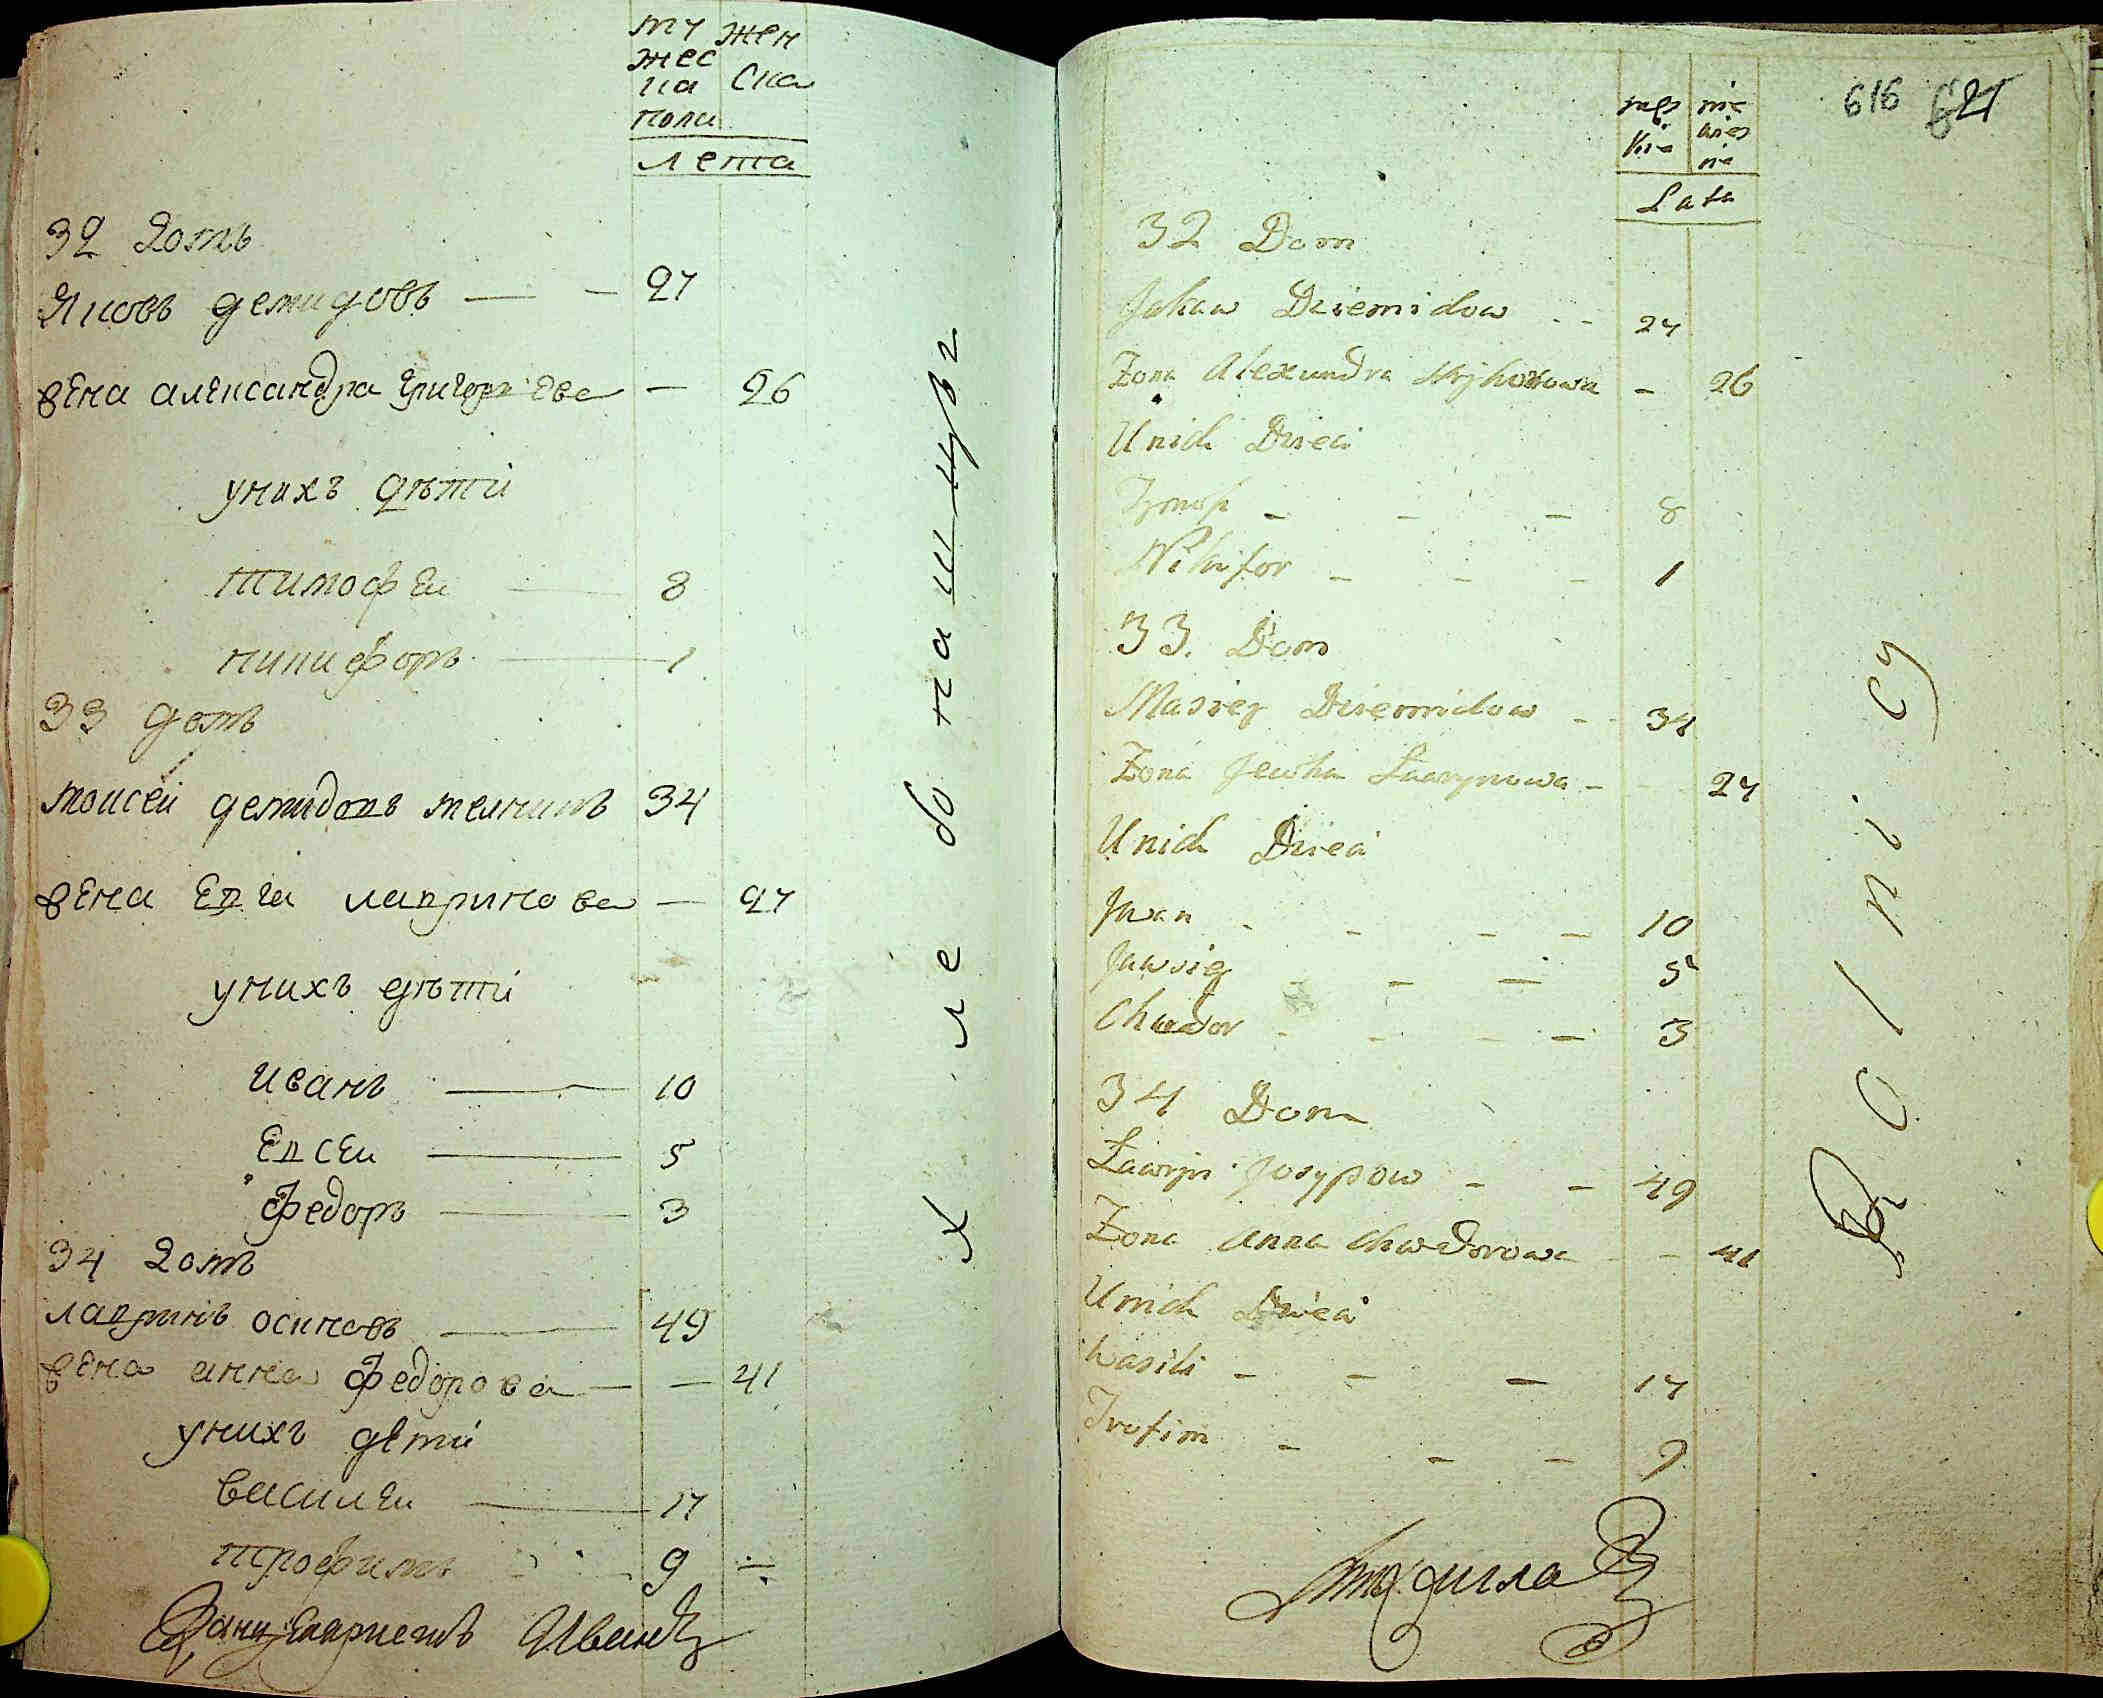 му жен
жес
ка ска
полѣ
лета
32 домъ
Яковъ демидовъ — — 27
жена александра григорьева — 26
унихъ дѣтӥ
тимофеи — 8
никифоръ — 1
33 домъ
моисеи демидовъ мелникъ 34
жена Евга лавринова — 27
унихъ дѣтӥ
иванъ — 10
Евсеи — 5
федоръ — 3
34 домъ
лавринъ осиповъ — 49
жена анна федорова — — 41
унихъ дети
василеи — 17
трофимъ 9
Иванъ
хлебопашцовъ
616 621
męs nie
kie wies
nie
Lata
32 Dom
Jakow Dziemidow - - 27
Zona Alexandra Hryhorowa - 26
Unich Dzieci
Tymofi - - - 8
Nikifor - - - 1
33. Dom
Masiey Dziemidow - 34
Zona Jewha Ławrynowa - 27
Unich Dzieci
Jwan - - - - 10
Jawsiey - - - 5
Chwedor - - - - 3
34 Dom
Ławryn Josypow - - 49
Zona Anna Chwedorowa - 41
Unich Dzieci
Wasili - - - 17
Trofim - - - 9
Rolnicy